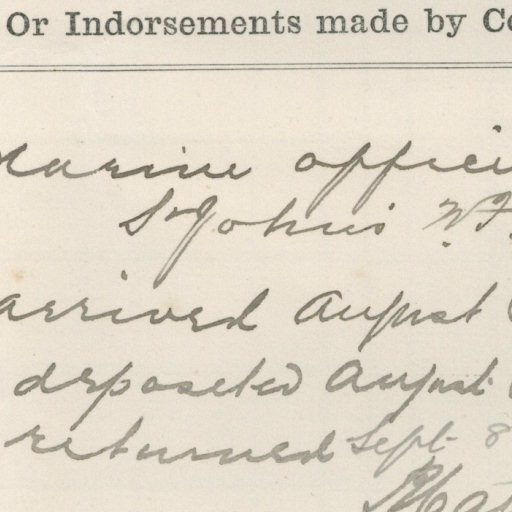 Or Indorsements made by Co
Marine offici
St Johns N.F.
arrived August
deposeted August
returned Sept 8